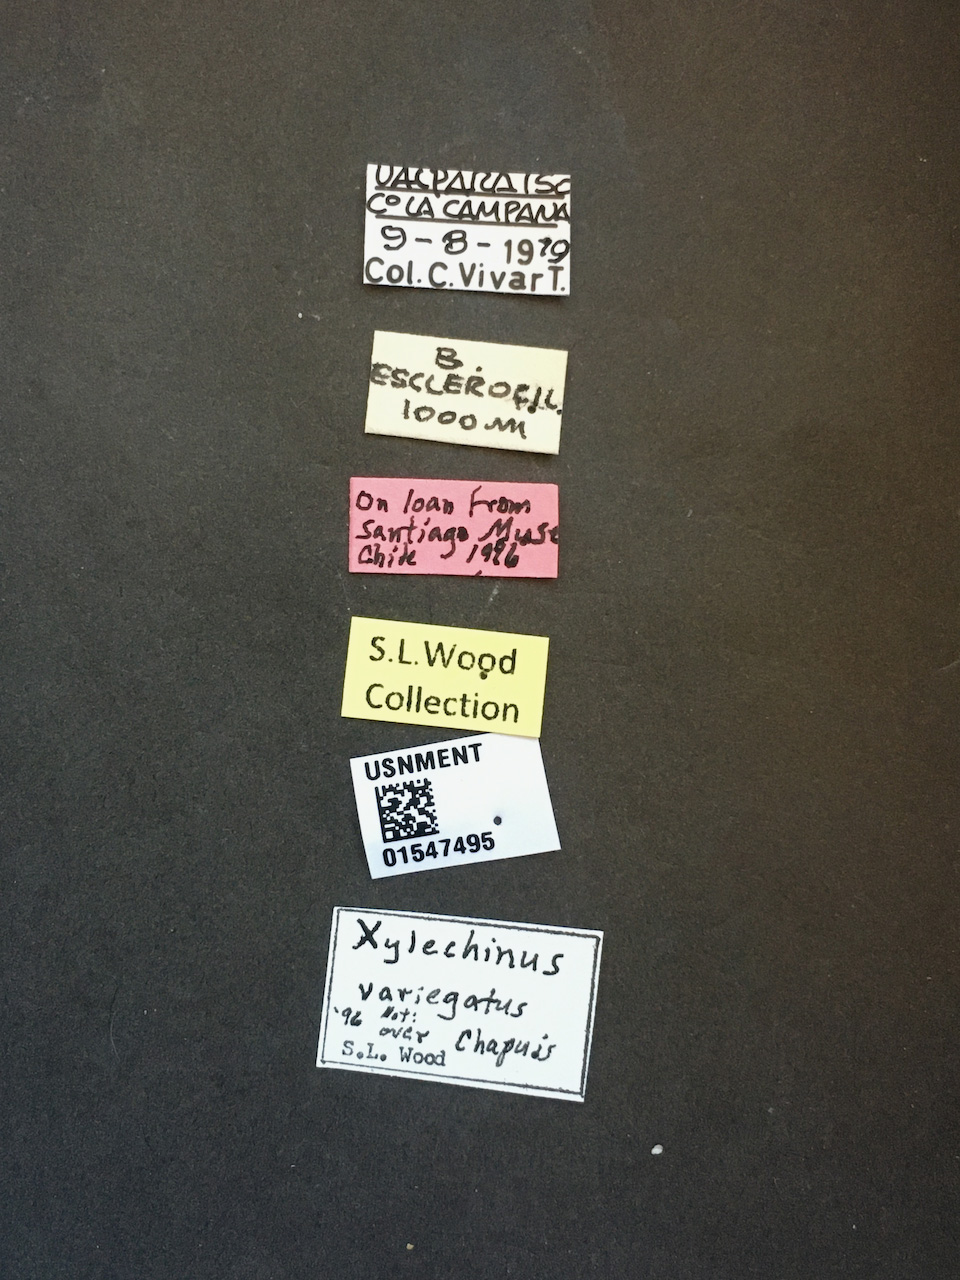 VALPARAISO
Cº LA CAMPANA
9-8-1979
Col. C. Vivar T.
B.
ESCLEROFIL.
1000 M
On loan from
Santiago Mus
Chile 1996
S.L.Wood
Collection
USNMENT
01547495
Xylechinus
variegatus
'96 Not:
over Chapuis
S.L. Wood